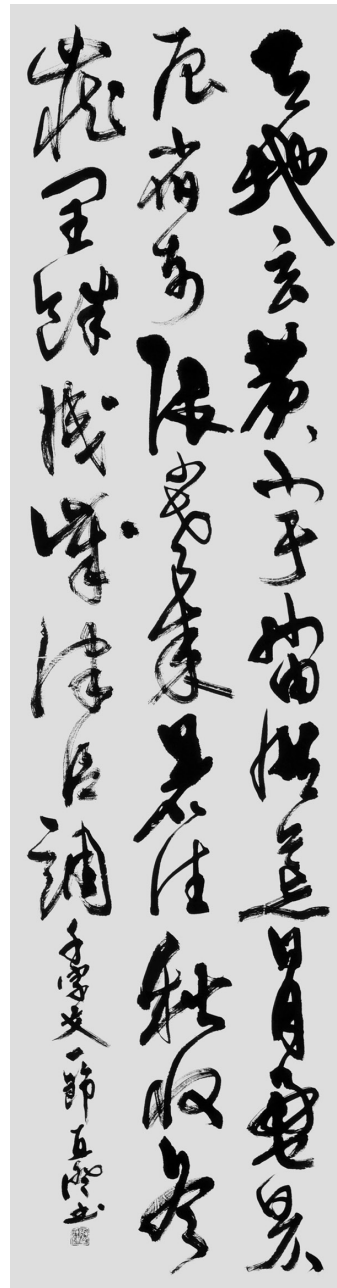 天地玄黄宇宙洪荒日月盈昃
辰宿列張寒来暑往秋収冬
蔵閏餘成歳律呂調 千字文一節 直書